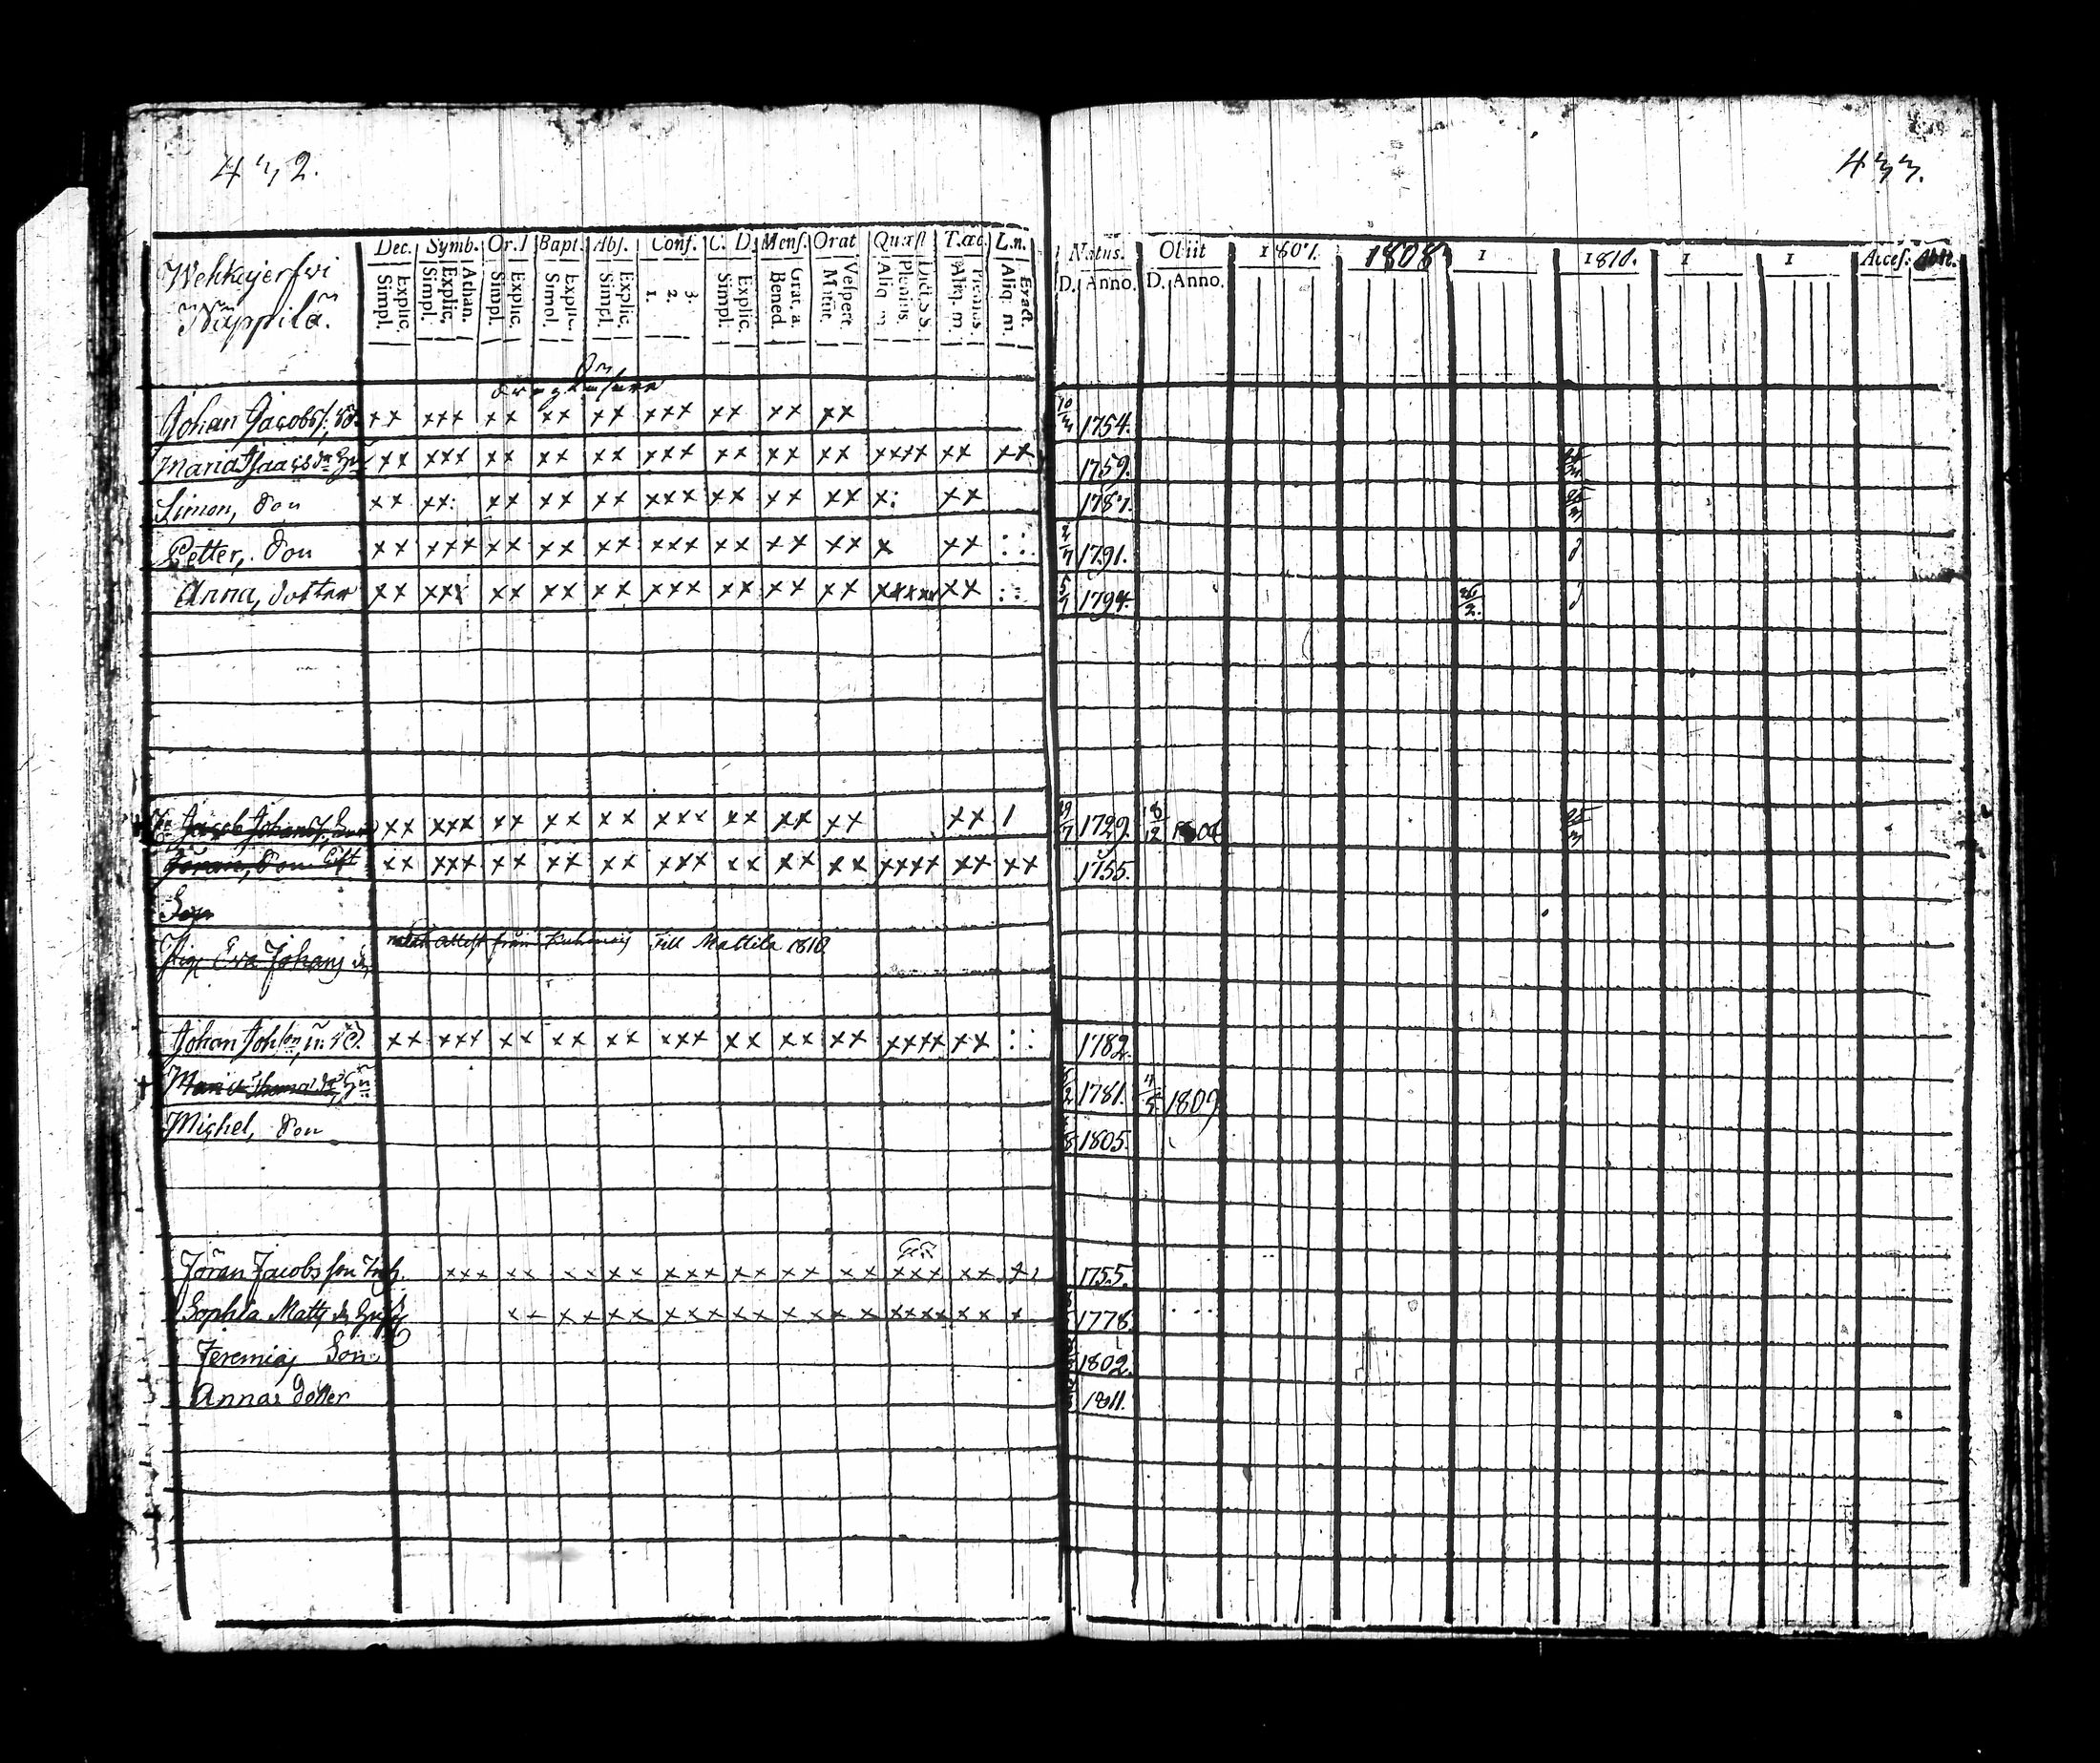 432.
433.
Wehkajerfwi
Näppilä.
Dec. Symb. Or. D Bapt. Abs. Conf. C. D. Mens. Orat Quæst T. œc. L. n.
Explic. Simpl. Athan. Explic. Simpl. Explic. Simpl. Explic. Simpl. Explic. Simpl. 3. 2. 1. Explic. Simpl. Grat. a. Bened. Vespert. Matut. Dict. S S. Plenius. Aliq. m. Plenius. Aliq. m. Exact. Aliq. m.
Natus. Obiit 1807. 1808 1 1810. 1 1 Acces. Abit.
D. Anno. D. Anno.
Johan Jacobs. xx xxx xx xx xx xxx xx xx xx 1754.
Maria Isaacs dr xx xxx xx xx xx xxx xx xx xx xxxx xx xx 1759.
Simon, Son xx xx: xx xx xx xxx xx xx xx x: xx 1787.
Petter, Son xx xxx xx xx xx xxx xx xx xx x xx 1791.
Anna, dotter xx xxx xx xx xx xxx xx xx xx xxxxx xx 1794. 26/2.
Jacob Johans. xx xxx xx xx xx xxx xx xx xx xx 1 1729. 18/12
Jöran, Son xx xxx xx xx xx xxx xx xx xx xxxx xx xx 1755.
Pig. Eva Johans dr med attest från Kuhmois till Mattila 1810
Johan Johson xx xxx xx xx xx xxx xx xx xx xxxx xx 1782.
Maria 1781. 1809
Michel, Son 1805.
Jöran Jacobsson Inh. xxx xx xx xx xxx xx xx xx xxx xx 1755.
Sophia Matts dr xx xx xx xxx xx x xx xx xxxx xx x 1778.
Jeremias Son 1802.
Anna dotter 1811.